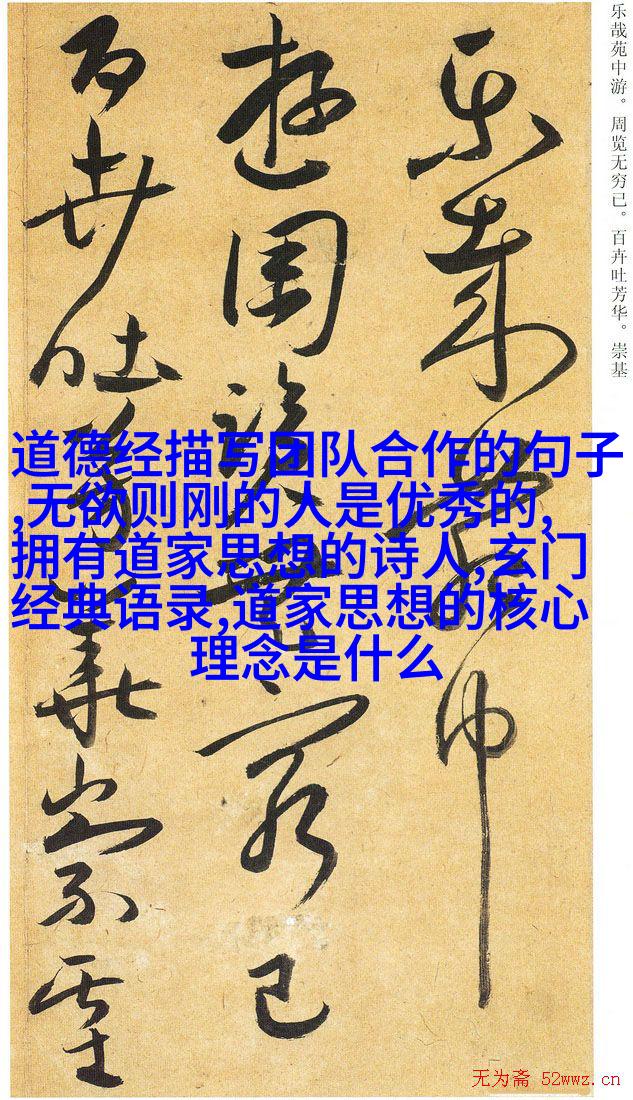 乐哉苑中
游周览无穷已
百卉吐芳华崇基
乐哉苑中游。周览无穷已。百卉吐芳华。崇基
道德经描写团队合作的句子
,无欲则刚的人是优秀的,
拥有道家思想的诗人,玄门
经典语录,道家思想的核心
理念是什么
无为斋 52wwz.cn